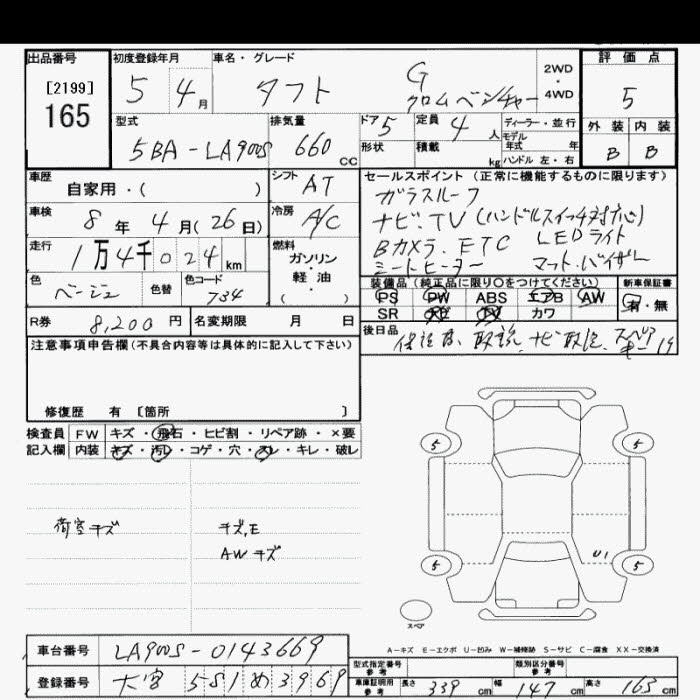 出品番号
[2199]
165
初度登録年月
5 4月
車名・グレード
タフト G
クロムベンチャー
2WD
・
4WD
評価点
5
外装 内装
B B
型式
5BA-LA900S
排気量
660 cc
ドア 5
形状
定員 4 人
積載 kg
ディーラー・並行
モデル
年式 年
ハンドル 左・右
車歴
自家用・( )
シフト AT
車検
8 年 4 月(26日)
冷房 A/C
走行
1万4千024 km
燃料
ガソリン
・
軽油
( )
色 ベージュ
色替
色コード 734
R券 8,200 円
名変期限 月 日
セールスポイント(正常に機能するものに限ります)
ガラスルーフ
ナビ・TV(ハンドルスイッチ対応)
Bカメラ・ETC LEDライト
シートヒーター マット・バイザー
装備品(純正品に限り○をつけてください)
新車保証書
PS PW ABS エアB AW
有・無
SR ナビ TV カワ
後日品
保証書、取説、ナビ取説、スペアキー1ケ
注意事項申告欄(不具合内容等は具体的に記入して下さい)
修復歴 有 〔箇所 〕
検査員 FW キズ・飛石・ヒビ割・リペア跡・×要
記入欄 内装 キズ・汚レ・コゲ・穴・スレ・キレ・破レ
荷室キズ
キズ,E
AWキズ
5 5
5 5
U1
スペア
A-キズ E-エクボ U-凹み W-補修跡 S-サビ C-腐食 XX-交換済
車台番号 LA900S-0143669
登録番号 大宮 581 め 3969
型式指定番号
参考
類別区分番号
参考
車庫証明用
参考
長さ 339 cm
幅 147 cm
高さ 163 cm